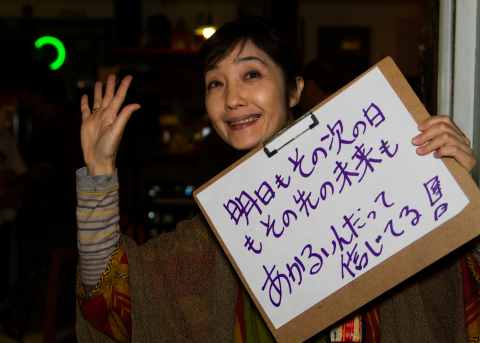 明日もその次の日
もその先の未来も
あかるいんだって
信じてる